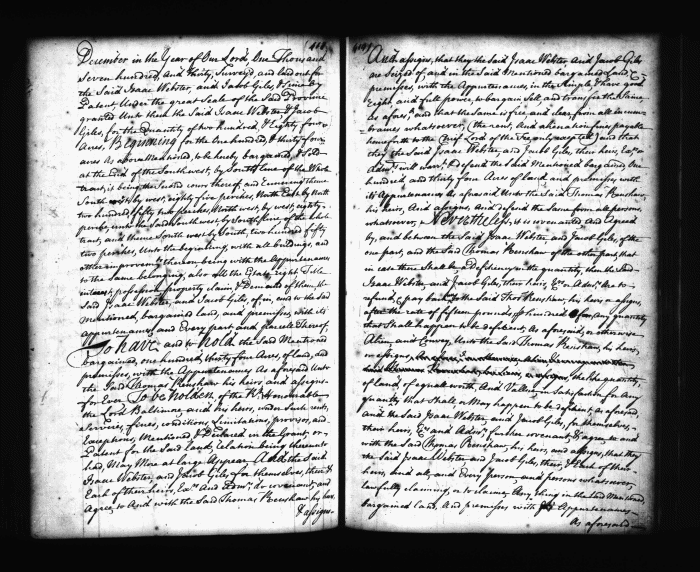 (418)
December in the Year of Our Lord, One Thousand
Seven hundred, And thirty, Surveyed, and laid out for
the Said Isaac Webster, and Jacob Giles, & Since by
Patent, Under the great Seale of the Said Province
granted Unto them the Said Isaac Webster & Jacob
Giles, for the Quantity of two Hundred, & Eighty four
Acres, Beginning for the One hundred, & thirty four
acres As aforementioned, to be hereby bargained, & Sold
at the End of the Southwest, by South line of the whole
tract, it being the Second course thereof, and Running thence
South west by west, eighty five perches, North East by North
two hundred, fifty two perches, North west, by west, eighty
perches, unto the Said Southwest by South line of the whole
tract, and thence South west by South, two hundred fifty
two perches, Unto the beginning, with all buildings, and
other improvements thereon being with the Appurtenances
to the Same belonging, also all the Estate, right Title
interest, possession, property Claim, & Demand of them, the
Said Isaac Webster, and Jacob Giles, of, in, and to the Said
mentioned, bargained land, and premisses, with its
appurtenances and Every part and parcele Thereof,
To have, and to hold the Said Mentioned
bargained, one hundred, thirty four Acres, of land, and
premisses, with the Appurtenances As aforesaid Unto
the Said Thomas Renshaw his heirs, and assigns
for Ever To be holden, of the Rt. Honourable
the Lord Baltimore and his heirs, under Such rents,
Services, fines, conditions, Limitations, provisos, and
Exceptions, Mentioned & Declared in the Grant, or
Patent for the Said land, relation being thereunto
had, May More at large Appear And the Said
Isaac Webster, and Jacob Giles, for themselves, their &
Each of their heirs, Exrs. and Admrs. do covenant, and
Agree, to And with the Said Thomas Renshaw his heirs
& assigns
(419)
And assigns, that they the Said Isaac Webster, And Jacob Giles
are Seized of, and in the Said Mentioned bargained Land, &
premisses, with the Appurtenances, in fee Simple, & have good
Right and full power, to bargain Sell, and transfer the Same
As afores'd, and that the Same is free, and clear from all incum-
brances whatsoever, (the rent, And alienation fines, payable
henceforth to the Chief Lord of the fee only excepted,) and that
they the Said Isaac Webster, and Jacob Giles, their heirs, Exrs. or
Admrs. will warrt. & defend the Said Mentioned bargained One
hundred and thirty four Acres of land and premisses with
its Appurtenances As aforesaid Unto the Said Thomas Renshaw,
his heirs, And assigns, and defend the Same from all persons
whatsoever, Neverthelefs, it is covenanted and Agreed
by, and between the Said Isaac Webster, and Jacob Giles, of the
one part, and the Said Thomas Renshaw of the other part, that
in case there Shall be a deficiency in the quantity, then the Said
Isaac Webster, and Jacob Giles, their heirs, Exrs. or Admrs. Are to
refund, & pay back to the Said Thos. Renshaw, his heirs or assigns,
after the rate of fifteen pounds, hundred for any quantity
that Shall happen to be deficient, As aforesaid, or otherwise
Alien, and Convey, Unto the Said Thomas Renshaw, his heirs,
or assigns, the like quantity
of land, of equall worth, And Value, in Satisfaction for Any
quantity that Shall, or May happen to be deficient as aforesaid,
And the Said Isaac Webster, and Jacob Giles, for themselves,
their heirs, Exrs. and Admrs. further covenant, & agree to and
with the Said Thomas Renshaw, his heirs, and assigns, that they
the Said Isaac Webster, and Jacob Giles, their, & Each of their
heirs, And all, and Every Person, and persons whatsoever,
lawfully claiming, or to claime, Any thing in the land Mentioned
bargained land, And premisses with Appurtenances
As aforesaid